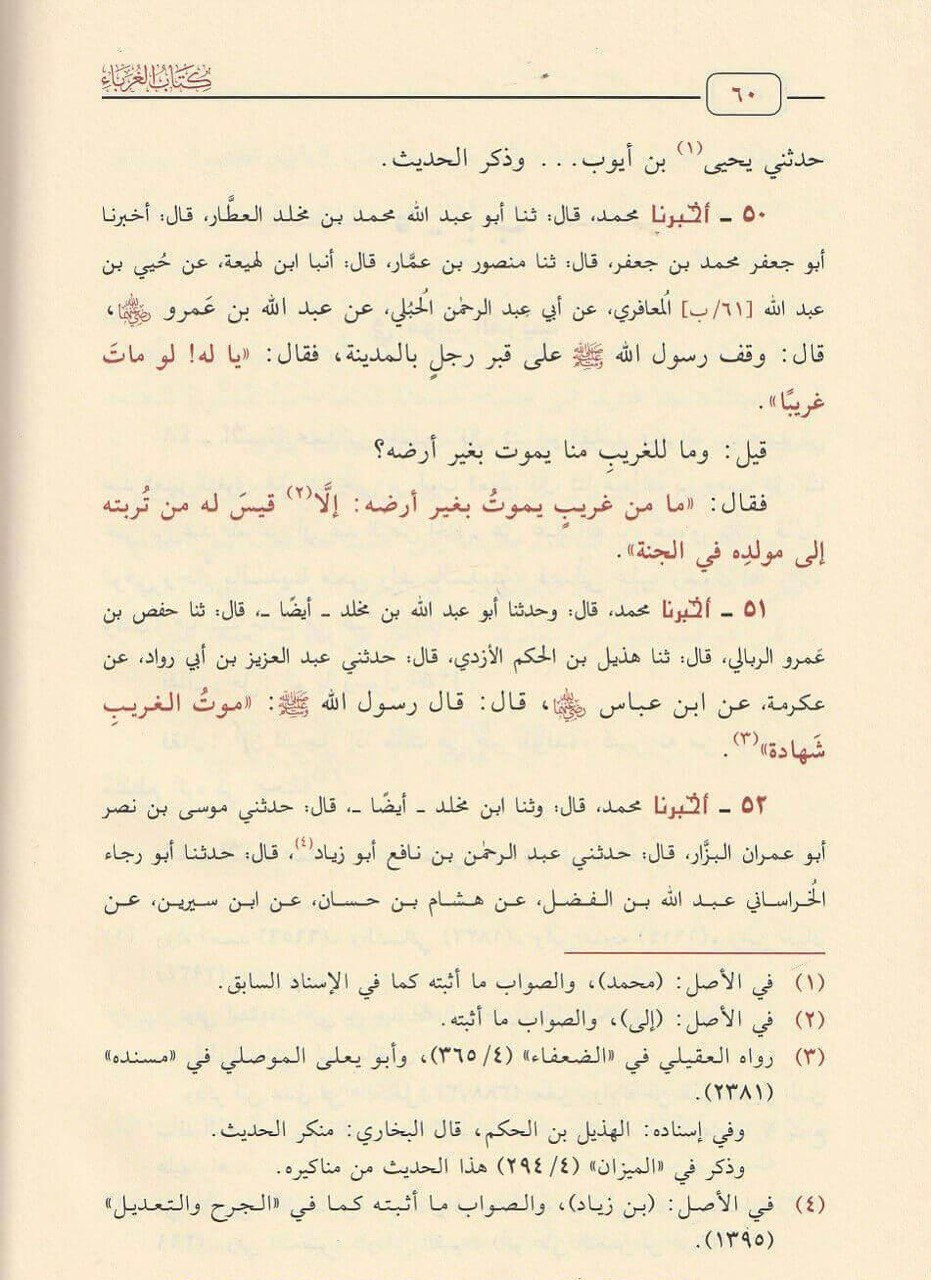 كتاب الغرباء
٦٠
حدثني يحيى(١) بن أيوب... وذكر الحديث.
٥٠ - أخبرنا محمد، قال: ثنا أبو عبد الله محمد بن مخلد العطَّار، قال: أخبرنا
أبو جعفر محمد بن جعفر، قال: ثنا منصور بن عمَّار، قال: أنبا ابن لهيعة، عن حُيي بن
عبد الله [٦١/ب] المعافري، عن أبي عبد الرحمٰن الحُبُلي، عن عبد الله بن عَمرو رضي الله عنهما،
قال: وقف رسول الله ﷺ على قبر رجلٍ بالمدينة، فقال: «يا له! لو ماتَ
غريبًا».
قيل: وما للغريبِ منا يموت بغير أرضه؟
فقال: «ما من غريبٍ يموتُ بغير أرضه: إلَّا(٢) قيسَ له من تُربته
إلى مولدِه في الجنة».
٥١ - أخبرنا محمد، قال: وحدثنا أبو عبد الله بن مخلد - أيضًا -، قال: ثنا حفص بن
عَمرو الربالي، قال: ثنا هذيل بن الحكم الأزدي، قال: حدثني عبد العزيز بن أبي رواد، عن
عكرمة، عن ابن عباس رضي الله عنهما، قال: قال رسول الله ﷺ: «موتُ الغريبِ
شَهادة»(٣).
٥٢ - أخبرنا محمد، قال: وثنا ابن مخلد - أيضًا -، قال: حدثني موسى بن نصر
أبو عمران البزَّار، قال: حدثني عبد الرحمٰن بن نافع أبو زياد(٤)، قال: حدثنا أبو رجاء
الخُراساني عبد الله بن الفضل، عن هشام بن حسان، عن ابن سيرين، عن
(١) في الأصل: (محمد)، والصواب ما أثبته كما في الإسناد السابق.
(٢) في الأصل: (إلى)، والصواب ما أثبته.
(٣) رواه العقيلي في «الضعفاء» (٤/ ٣٦٥)، وأبو يعلى الموصلي في «مسنده»
(٢٣٨١).
وفي إسناده: الهذيل بن الحكم، قال البخاري: منكر الحديث.
وذكر في «الميزان» (٤/ ٢٩٤) هذا الحديث من مناكيره.
(٤) في الأصل: (بن زياد)، والصواب ما أثبته كما في «الجرح والتعديل»
(١٣٩٥).